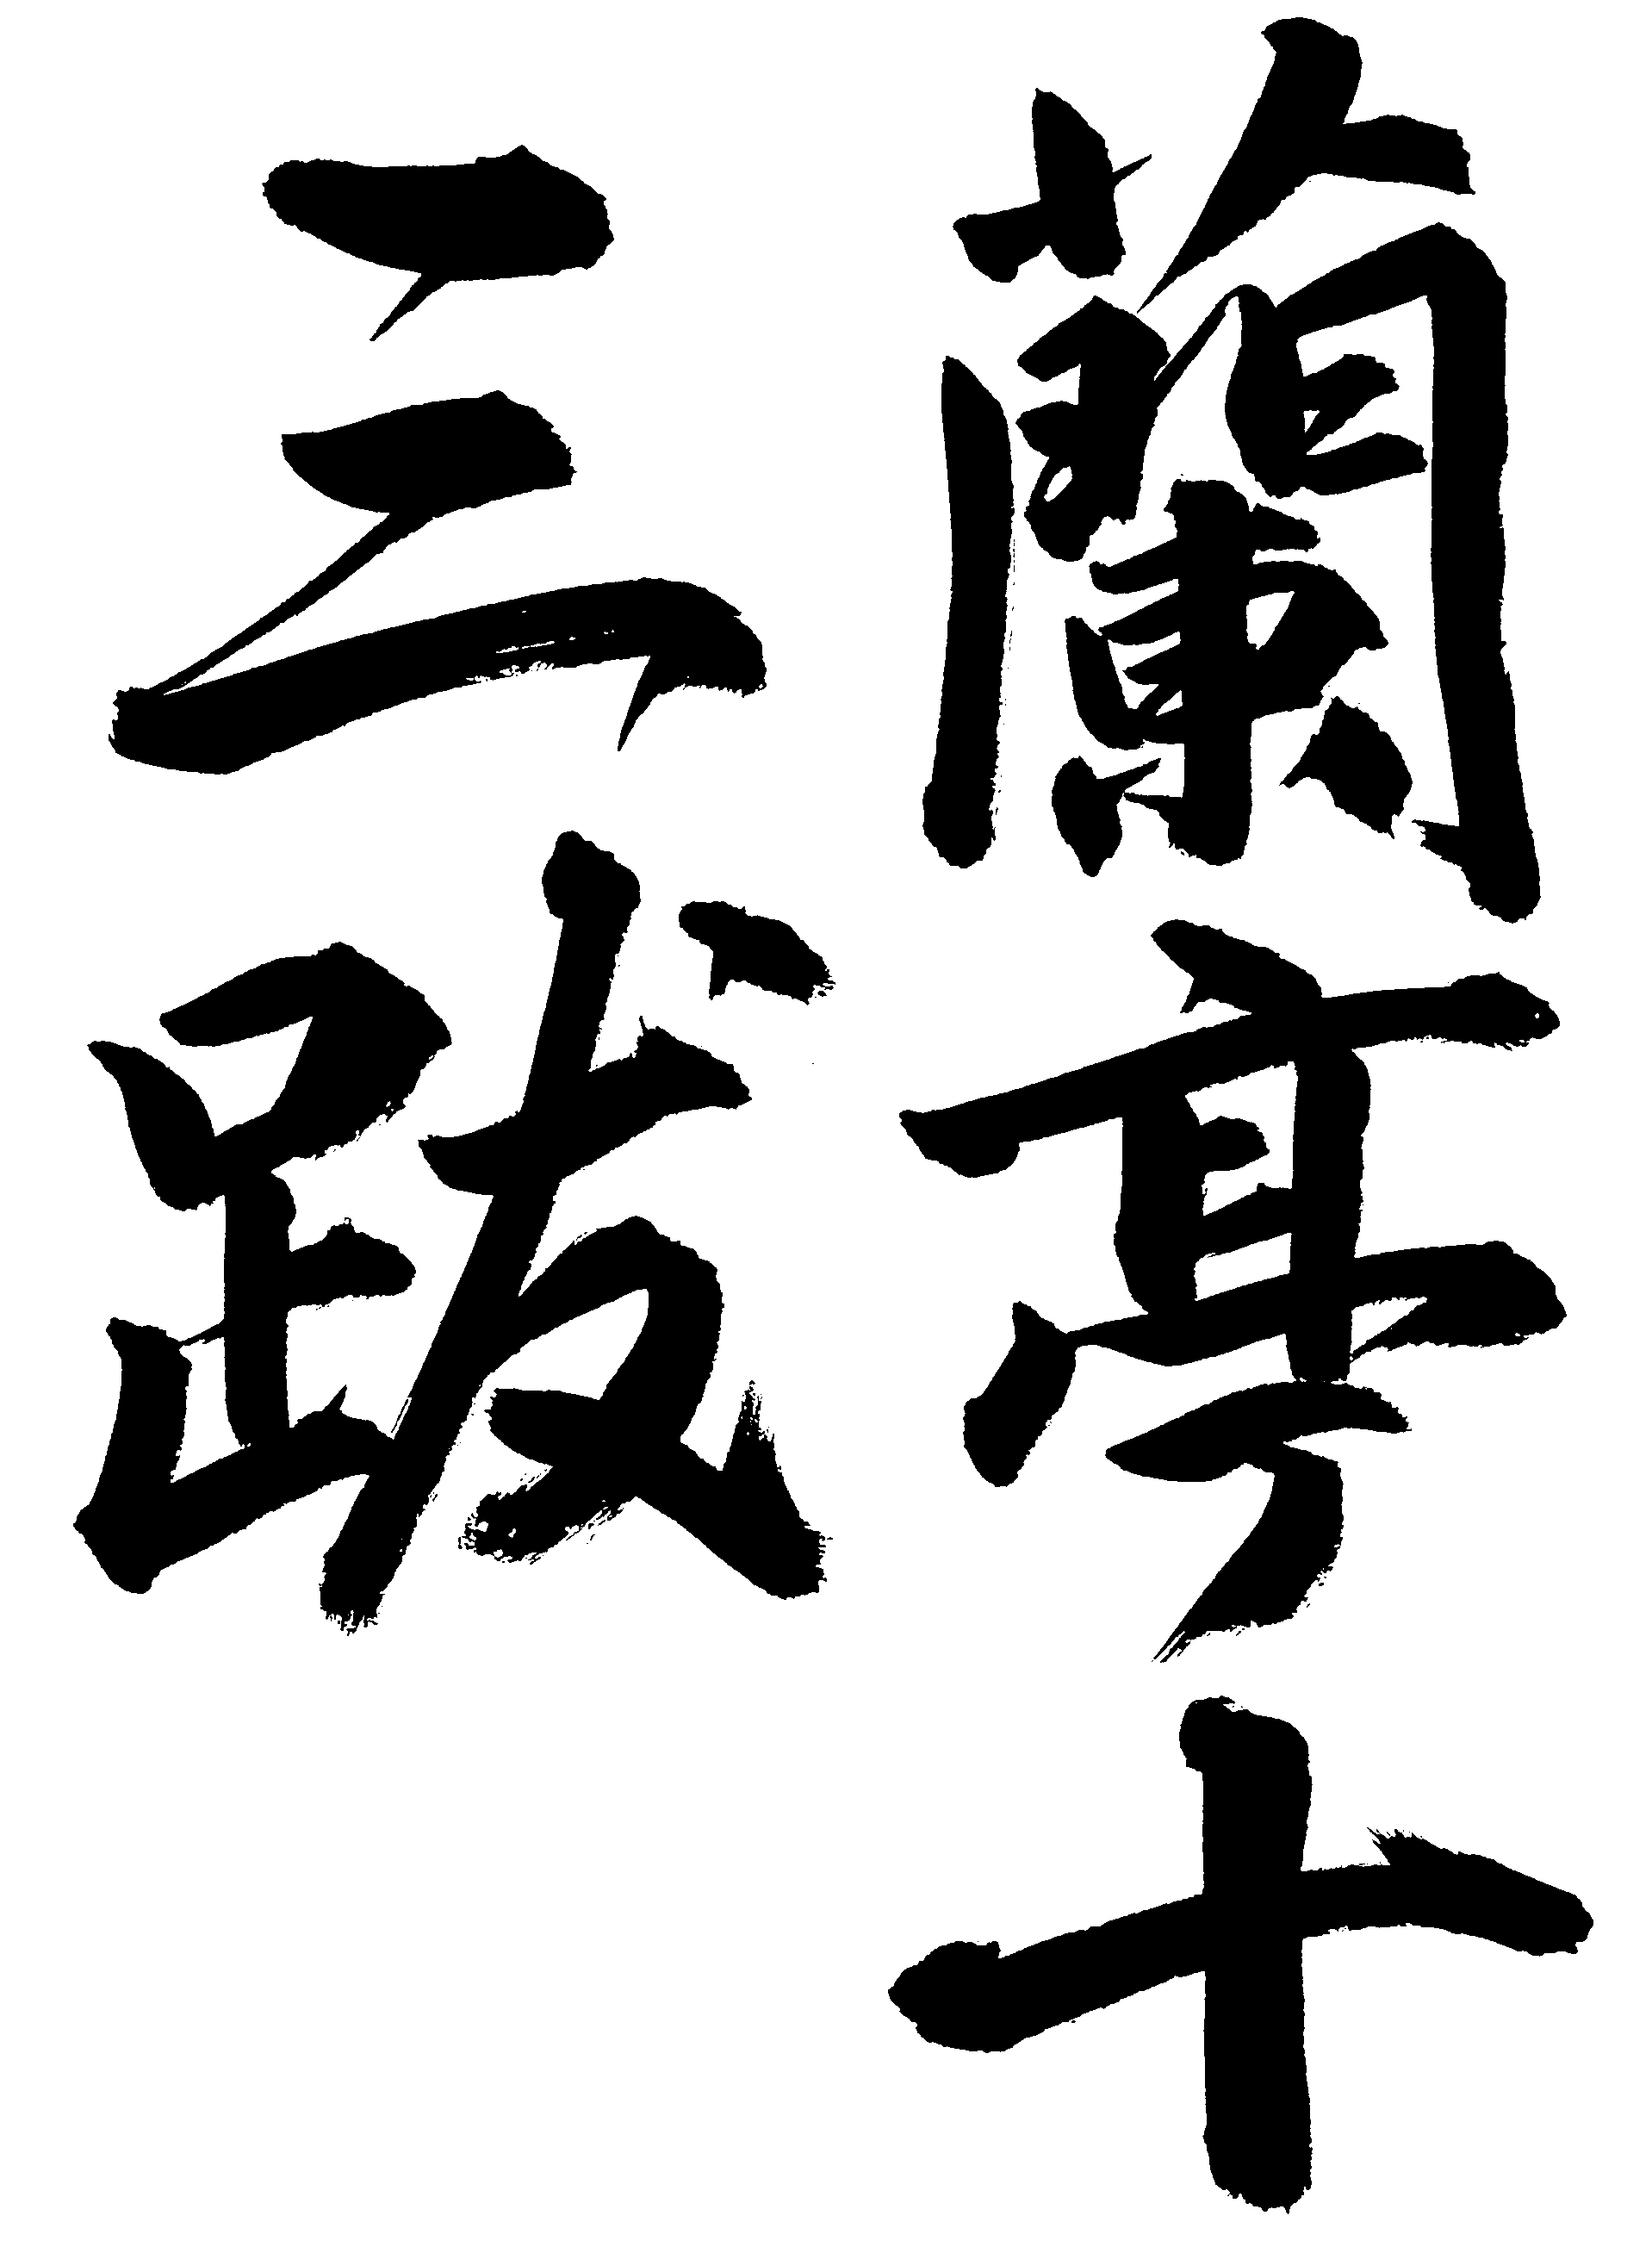 蘭亭十
三跋